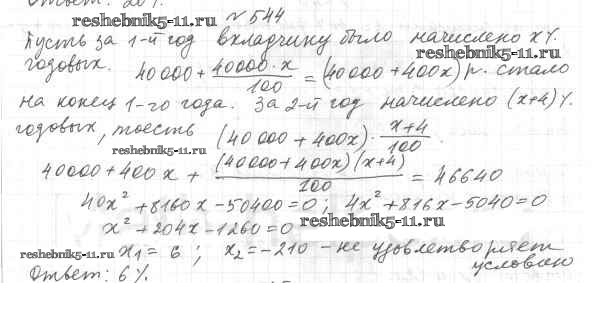 Ответ: 20%.
reshebnik5-11.ru № 544
Пусть за 1-й год вкладчику было начислено x%
reshebnik5-11.ru
годовых. 40000 + 40000·x / 100 = (40000 + 400x) р. стало
на конец 1-го года. За 2-й год начислено (x+4)%
годовых, тоесть (40000 + 400x) · x+4 / 100.
reshebnik5-11.ru
40000 + 400x + (40000 + 400x)(x+4) / 100 = 46640
40x² + 8160x - 50400 = 0; 4x² + 816x - 5040 = 0
x² + 204x - 1260 = 0 reshebnik5-11.ru
reshebnik5-11.ru x₁ = 6; x₂ = -210 - не удовлетворяет
условию
Ответ: 6%.